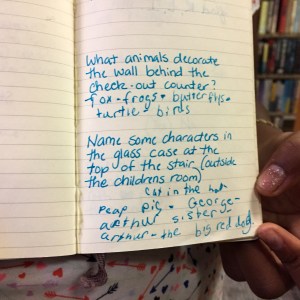 What animals decorate
the wall behind the
check-out counter?
fox - frogs - butterflys -
turtle - birds
Name some characters in
the glass case at the
top of the stair (outside
the childrens room)
Cat in the hat
Peap pig - George -
arthur sister -
arthur - the big red dog.